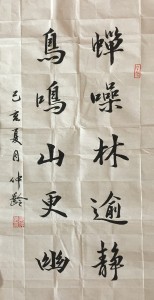 蟬噪林逾静
鳥鳴山更幽
己亥夏月仲齡